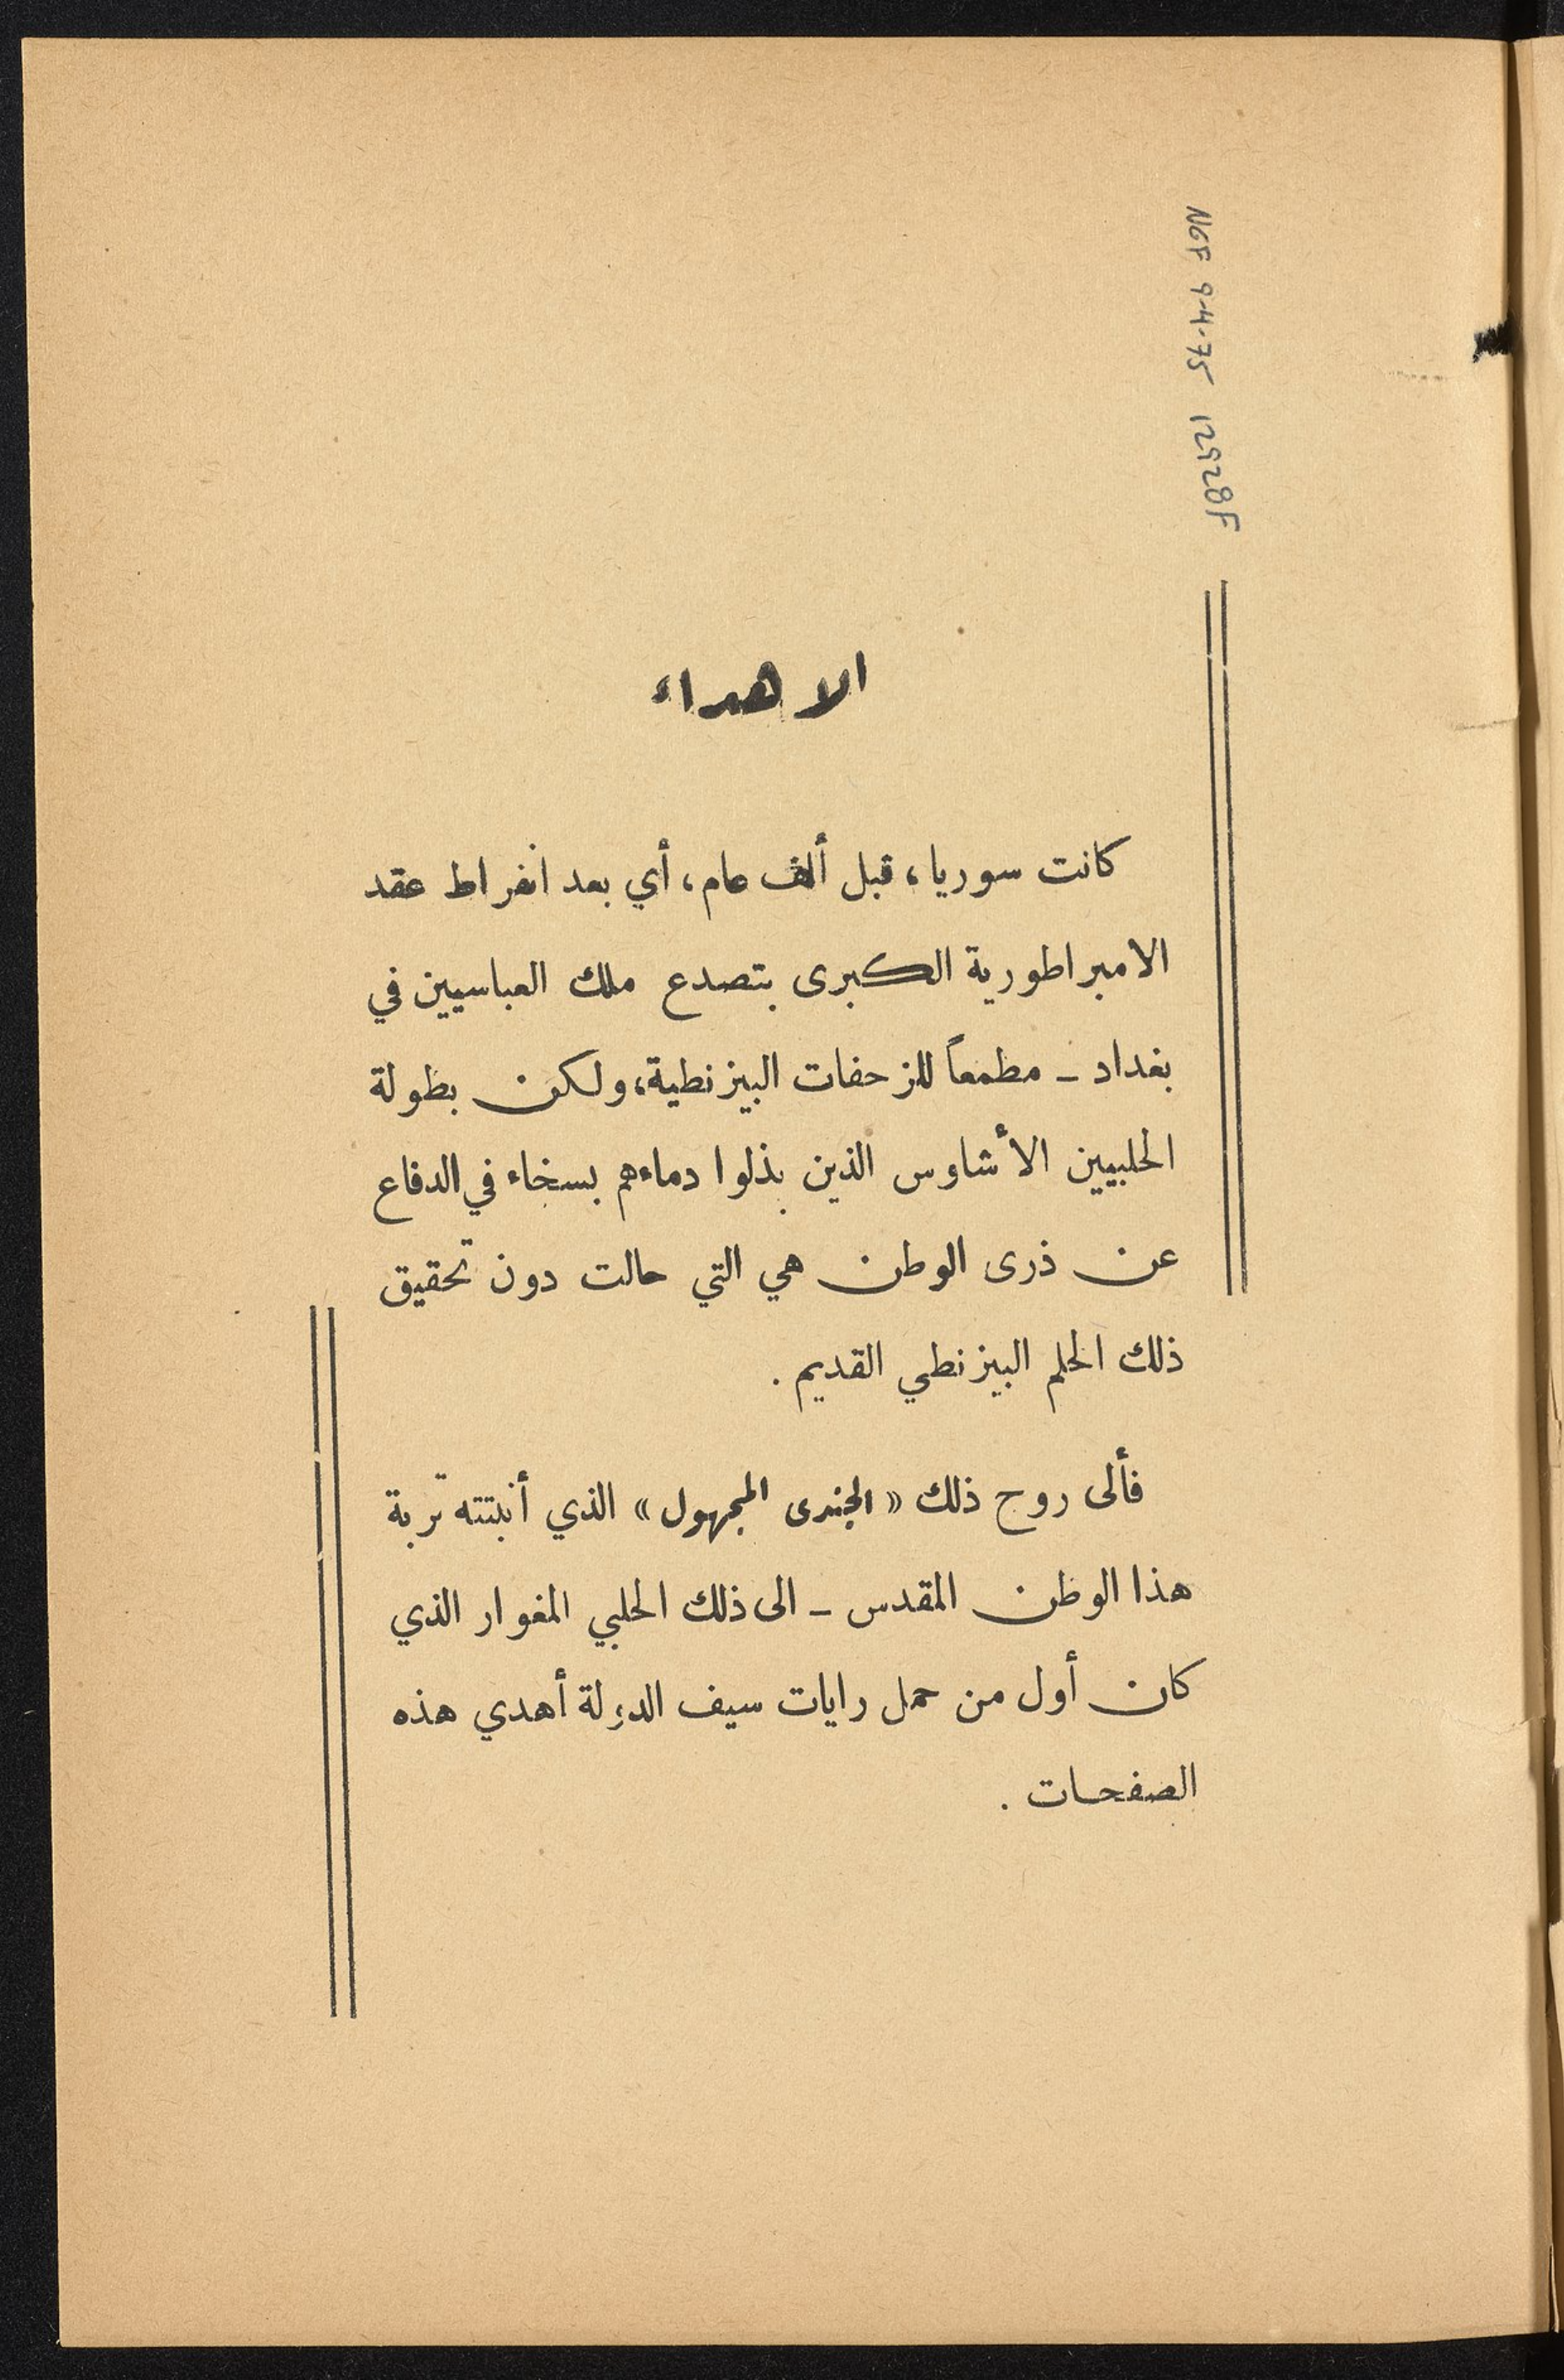 NGF 9-4-75 12928F
الاهداء
كانت سوريا، قبل ألف عام، أي بعد انفراط عقد
الامبراطورية الكبرى بتصدع ملك العباسيين في
بغداد - مطمعاً للزحفات البيزنطية، ولكن بطولة
الحلبيين الأشاوس الذين بذلوا دماءهم بسخاء في الدفاع
عن ذرى الوطن هي التي حالت دون تحقيق
ذلك الحلم البيزنطي القديم .
فألى روح ذلك «الجندى المجهول» الذي أنبتته تربة
هذا الوطن المقدس - الى ذلك الحلبي المغوار الذي
كان أول من حمل رايات سيف الدولة أهدي هذه
الصفحات .